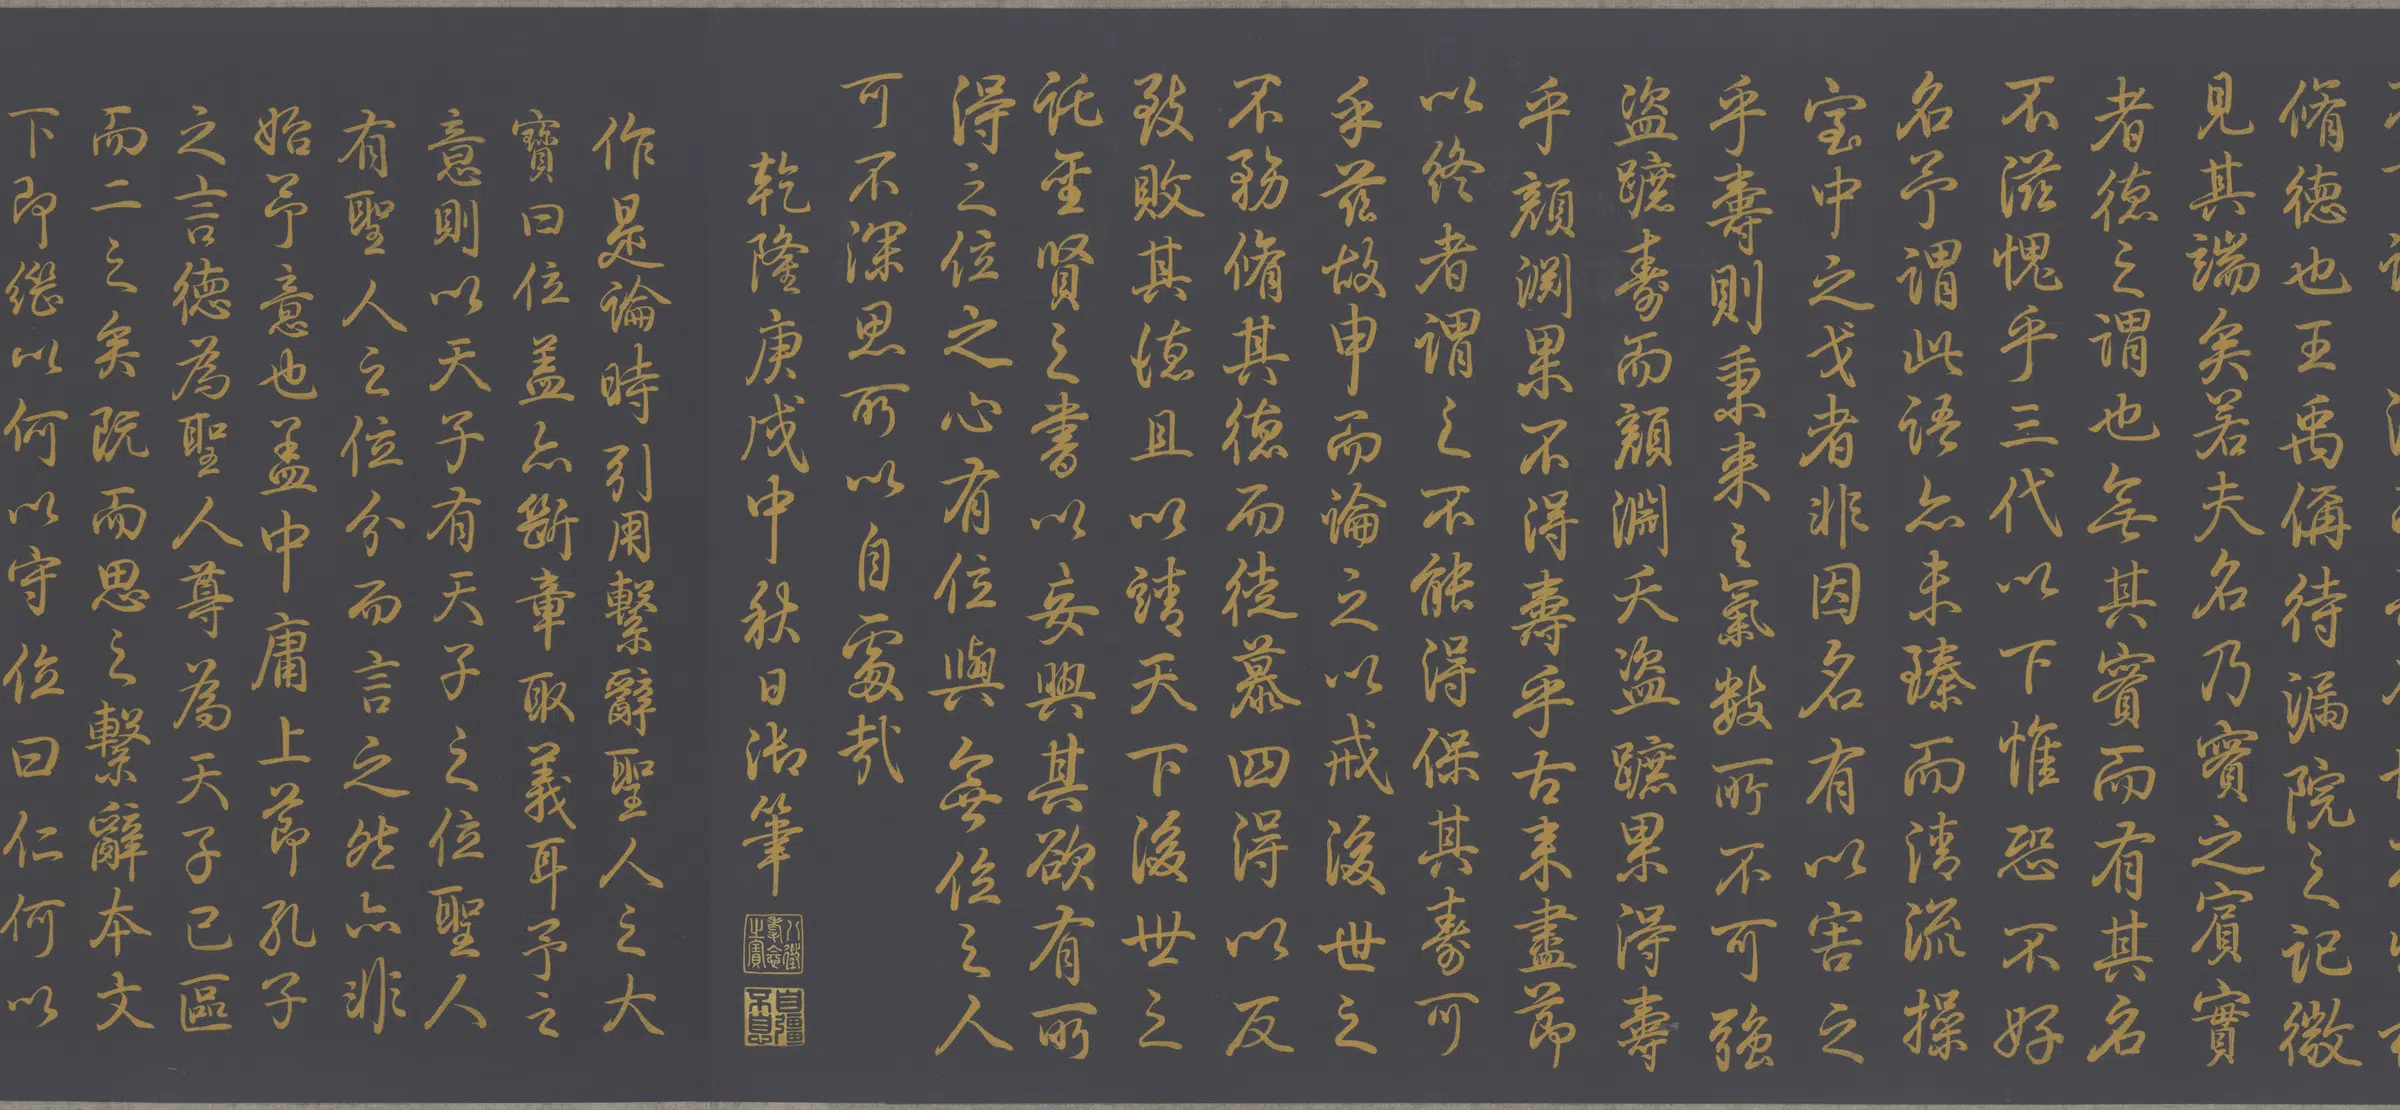 脩德也王禹偁待漏院之記微
見其端矣若夫名乃實之賓實
者德之謂也無其實而有其名
不滋愧乎三代以下惟恐不好
名予謂此語亦未臻而清流操
室中之戈者非因名有以害之
乎壽則秉來之氣數所不可強
盜蹠壽而顏淵夭盜蹠果得壽
乎顏淵果不得壽乎古來盡節
以終者謂之不能得保其壽可
乎茲故申而論之以戒後世之
不務脩其德而徒慕四得以反
致敗其德且以靖天下後世之
託聖賢之書以妄興其欲有所
得之位之心有位與無位之人
可不深思所以自處哉
乾隆庚戌中秋日御筆
八徵耄念之寶
自彊不息
作是論時引用繫辭聖人之大
寶曰位蓋亦斷章取義耳予之
意則以天子有天子之位聖人
有聖人之位分而言之然亦非
始予意也蓋中庸上節孔子
之言德為聖人尊為天子已區
而二之矣既而思之繫辭本文
下即繼以何以守位曰仁何以